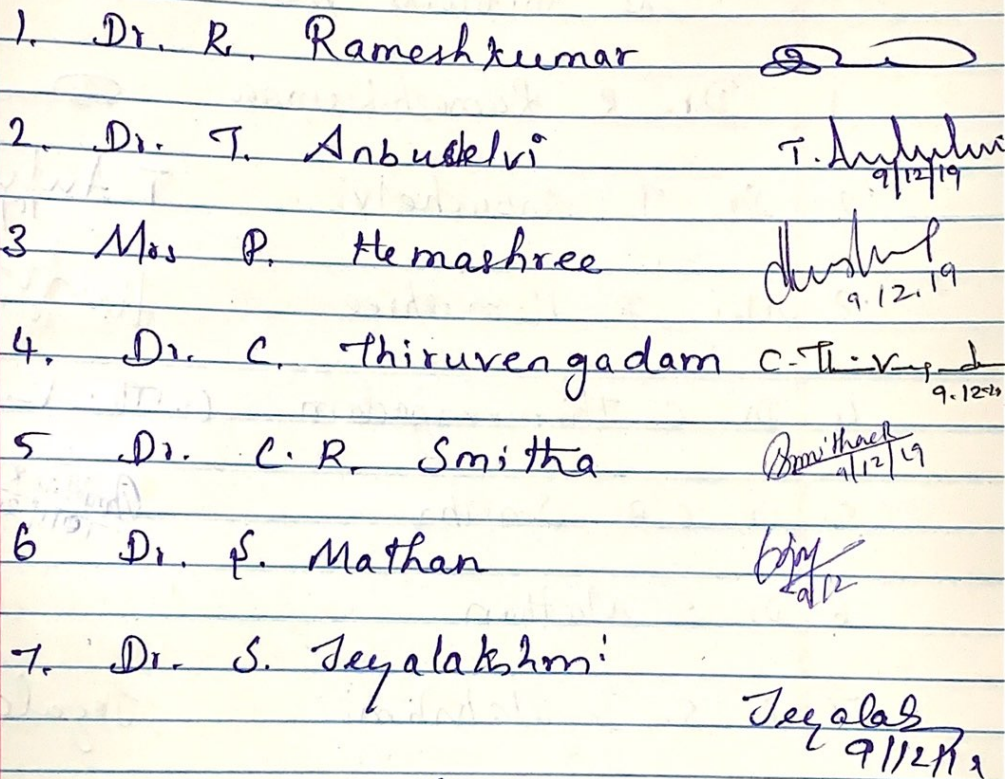 1. Dr. R. Rameshkumar
2. Dr. T. Anbuselvi T. Anbuselvi
9/12/19
3 Mrs P. Hemashree
9.12.19
4. Dr. C. Thiruvengadam C. Thiruvengadam
9.12.19
5 Dr. C. R. Smitha SmithaCR
9/12/19
6 Dr. S. Mathan
9/12
7. Dr. S. Jeyalakshmi
Jeyalak
9/12/19